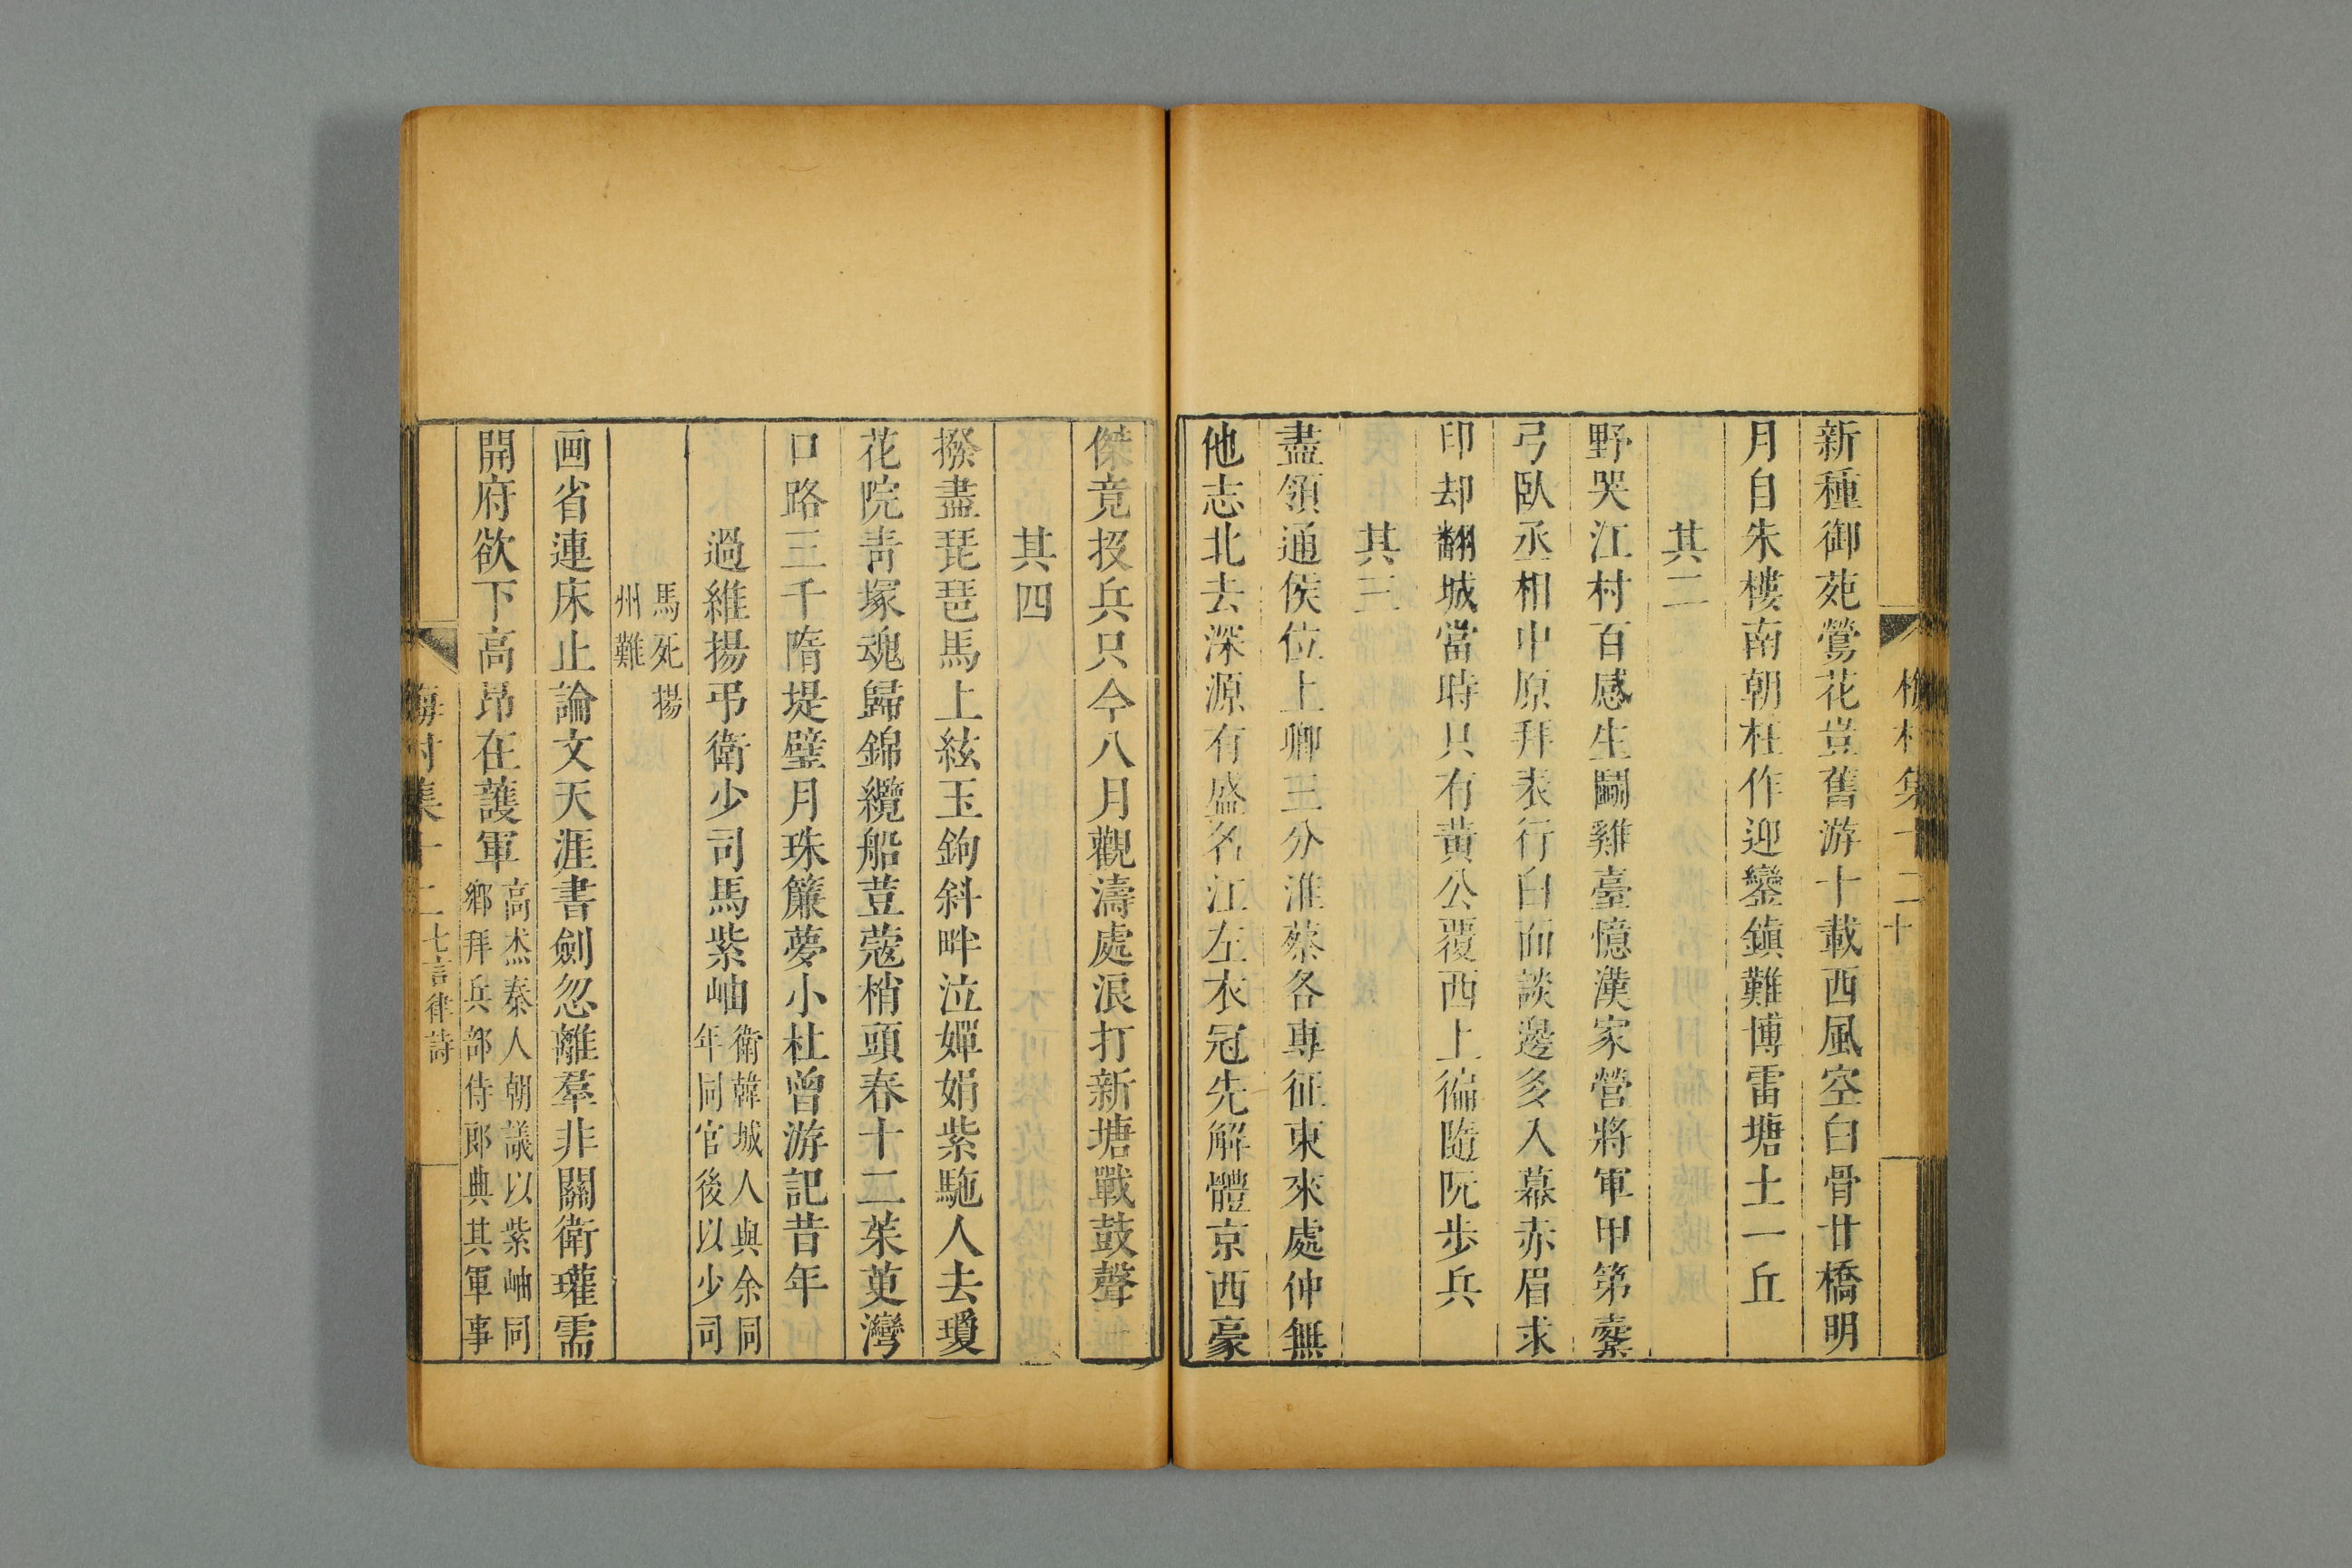 梅村集十二 二十
新種御苑鶯花豈舊游十載西風空白骨廿橋明
月自朱樓南朝枉作迎鑾鎮難博雷塘土一丘
其二
野哭江村百感生鬭雞臺憶漢家營將軍甲第櫜
弓臥丞相中原拜表行白面談邊多入幕赤眉求
印却翻城當時只有黃公覆西上徧隨阮步兵
其三
盡領通侯位上卿三分淮蔡各專征東來處仲無
他志北去深源有盛名江左衣冠先解體京西豪
傑竟投兵只今八月觀濤處浪打新塘戰鼓聲
其四
撥盡琵琶馬上絃玉鉤斜畔泣嬋娟紫駞人去瓊
花院靑塚魂歸錦纜船荳蔻梢頭春十二茱萸灣
口路三千隋堤璧月珠簾夢小杜曾游記昔年
過維揚弔衛少司馬紫岫衛韓城人與余同
年同官後以少司
馬死揚
州難
画省連床止論文天涯書劍忽離羣非關衛瓘需
開府欲下高昂在護軍高杰秦人朝議以紫岫同
鄉拜兵部侍郎典其軍事
梅村集十二 七言律詩